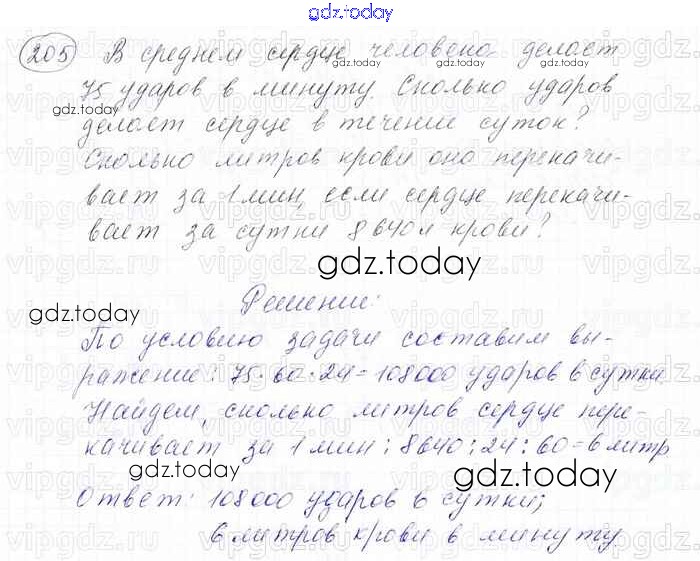 gdz.today
205 В среднем сердце человека делает
75 ударов в минуту. Сколько ударов
делает сердце в течение суток?
Сколько литров крови оно перекачи-
вает за 1 мин, если сердце перекачи-
вает за сутки 8640 л крови?
Решение:
По условию задачи составим вы-
ражение: 75·60·24=108000 ударов в сутки
Найдем, сколько литров сердце пере-
качивает за 1 мин: 8640:24:60=6 литр
Ответ: 108000 ударов в сутки;
6 литров крови в минуту
gdz.today
gdz.today
gdz.today
gdz.today
gdz.today
gdz.today
gdz.today
gdz.today
vipgdz